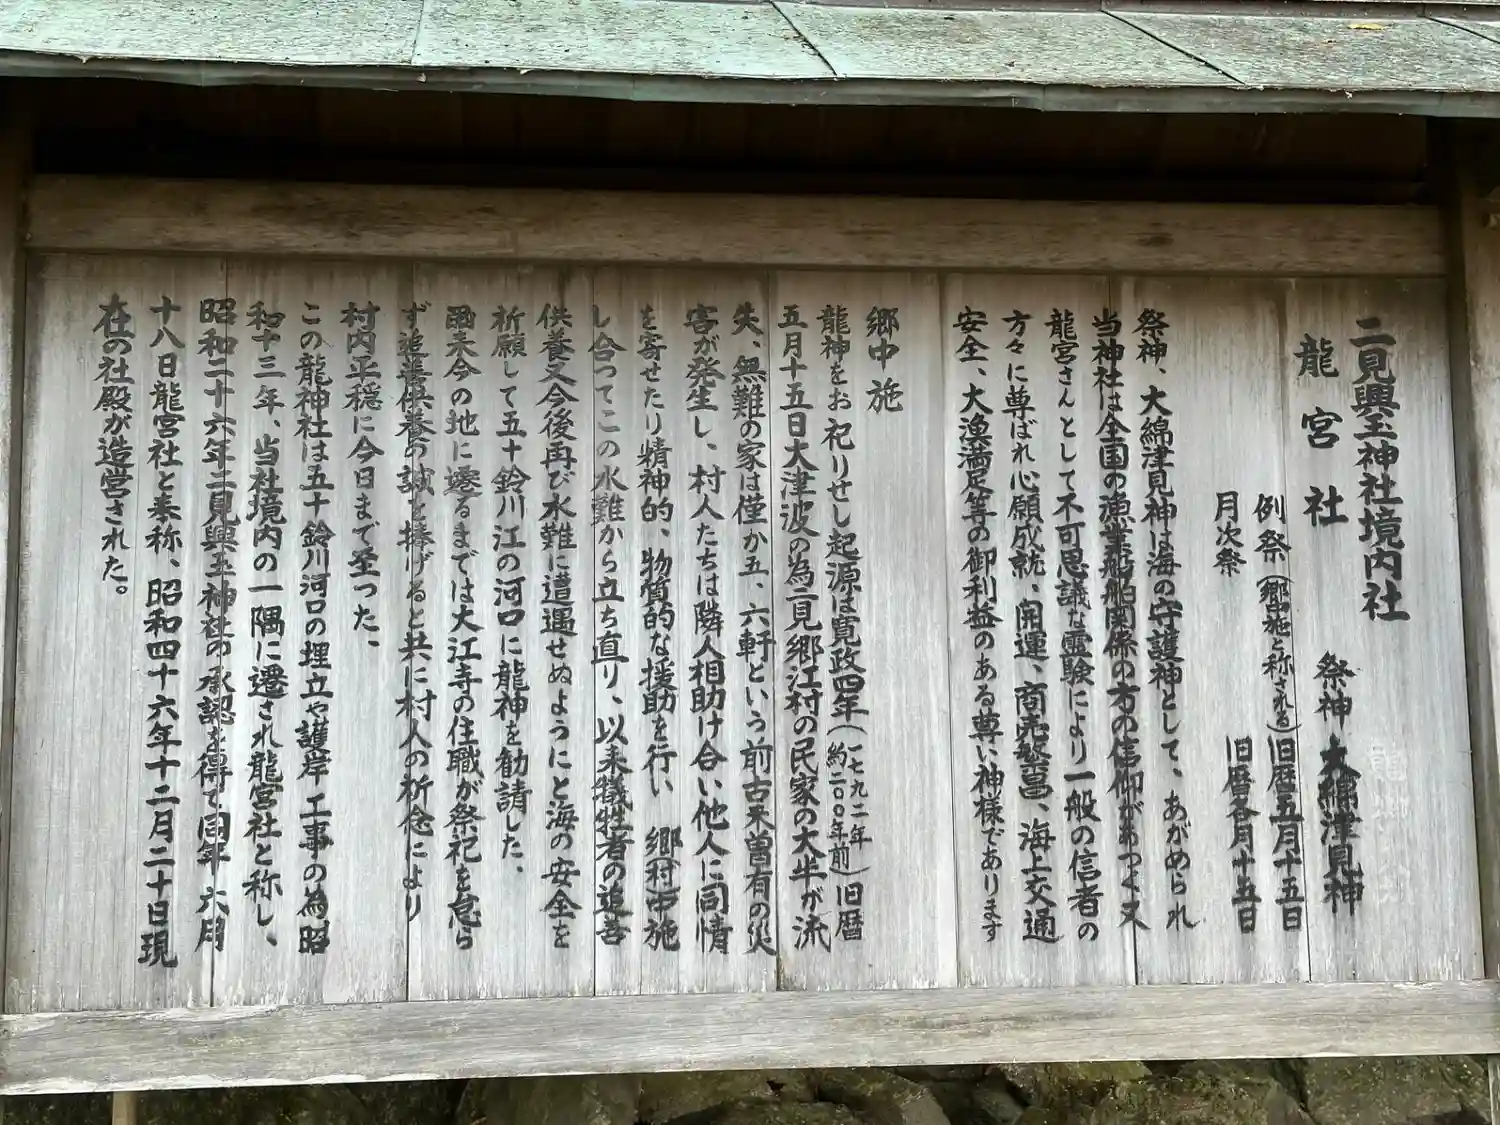 二見興玉神社境内社
龍宮社　祭神 大綿津見神
例祭（郷中施と称される）旧暦五月十五日
月次祭　旧暦各月十五日
祭神、大綿津見神は海の守護神として、あがめられ
当神社は全国の漁業船舶関係の方の信仰があつく又
龍宮さんとして不可思議な霊験により一般の信者の
方々に尊ばれ心願成就、開運、商売繁昌、海上交通
安全、大漁満足等の御利益のある尊い神様であります
郷中施
龍神をお祀りせし起源は寛政四年（一七九二年 約二〇〇年前）旧暦
五月十五日大津波の為二見郷江村の民家の大半が流
失、無難の家は僅か五、六軒という前古未曽有の災
害が発生し、村人たちは隣人相助け合い他人に同情
を寄せたり精神的、物質的な援助を行い 郷（村）中施
し合つてこの水難から立ち直り、以来犠牲者の追善
供養又今後再び水難に遭遇せぬようにと海の安全を
祈願して五十鈴川江の河口に龍神を勧請した、
爾来今の地に遷るまでは大江寺の住職が祭祀を怠ら
ず追善供養の誠を捧げると共に村人の祈念により
村内平穏に今日まで至つた、
この龍神社は五十鈴川河口の埋立や護岸工事の為昭
和十三年、当社境内の一隅に遷され龍宮社と称し、
昭和二十六年二見興玉神社の承認を得て同年六月
十八日龍宮社と奉称、昭和四十六年十二月二十日現
在の社殿が造営された。